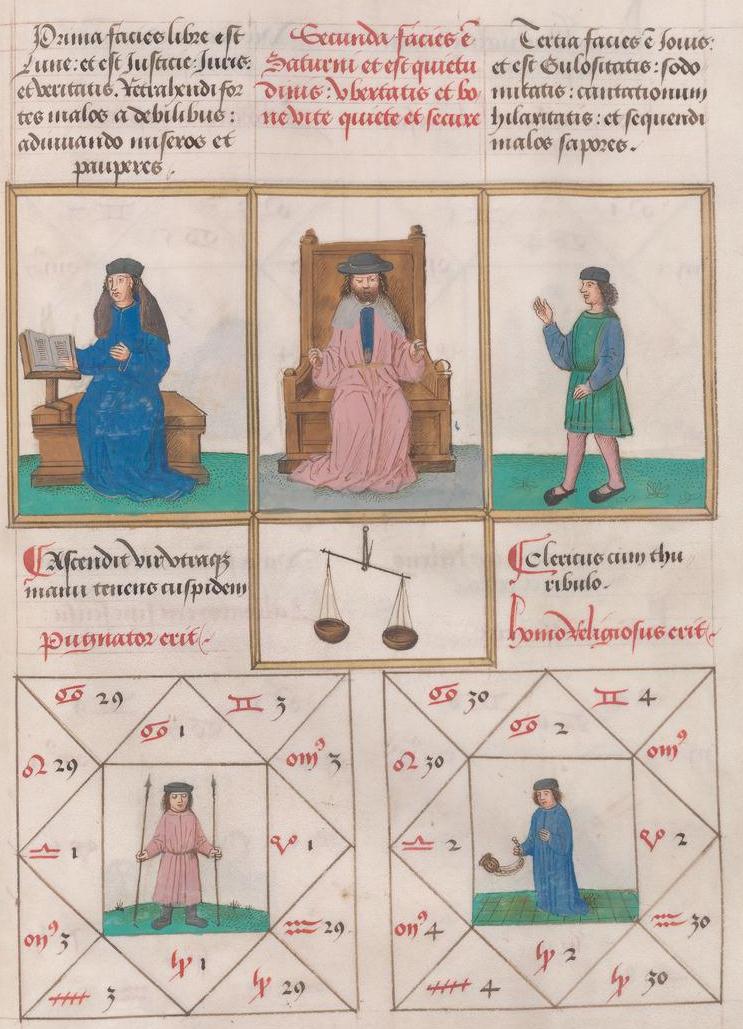 Prima facies libre est
Lune: et est Iusticie: Iuris:
et veritatis. Retrahendi for
tes malos a debilibus:
adiuuando miseros et
pauperes.
Secunda facies ē
Saturni et est quietu
dinis: vbertatis et bo
ne vite quiete et secure
Tertia facies ē Iouis:
et est Gulositatis: sodo
mitatis: cantationum
hilaritatis: et sequendi
malos sapores.
Ascendit vir vtraqꝫ
manu tenens cuspidem
Pugnator erit
Clericus cum thu
ribulo.
homo religiosus erit
♋ 29
♊ 3
♋ 1
♌ 29
3
♎ 1
♈ 1
3
♒ 29
♑ 1
3
♑ 29
♋ 30
♊ 4
♋ 2
♌ 30
♎ 2
♈ 2
4
♒ 30
♑ 2
4
♑ 30